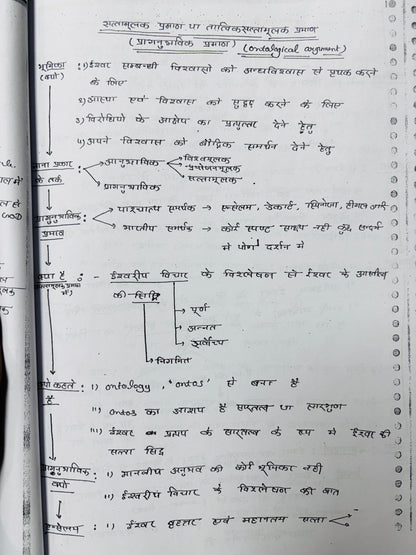 सत्तामूलक प्रमाण या तात्विकसत्तामूलक प्रमाण
( प्रागनुभविक प्रमाण ) (ontological argument)
भूमिका : 1) ईश्वर सम्बन्धी विश्वासों को अन्धविश्वास से पृथक करने
(क्यों) के लिए
2) आस्था एवं विश्वास को सुदृढ करने के लिए
3) विरोधियों के आक्षेप का प्रत्युत्तर देने हेतु
4) अपने विश्वास को बौद्धिक समर्थन देने हेतु
नाना प्रकार : → आनुभाविक → विश्वमूलक
के तर्क → प्रयोजनमूलक
→ सत्तामूलक
→ प्रागनुभविक
प्रागनुभविक : → पाश्चात्य समर्थक → एन्सेल्म, डेकार्ट, स्पिनोजा, हीगल आदि
प्रमाण → भारतीय समर्थक → कोई स्पष्ट साक्ष्य नहीं कुछ सन्दर्भ
में योग दर्शन में
क्या है : - ईश्वरीय विचार के विश्लेषण से ईश्वर के अस्तित्व
की सिद्धि
→ पूर्ण
→ अनन्त
→ सर्वोच्च
→ निगमित
क्यों कहते : i) ontology, 'ontos' से बना है
है ii) ontos का आशय है सारतत्व या सारगुण
iii) ईश्वर के प्रत्यय के सारतत्व के रूप में ईश्वर की
सत्ता सिद्ध
प्रागनुभविक : i) मानवीय अनुभव की कोई भूमिका नहीं
क्यों ii) ईश्वरीय विचार के विश्लेषण की बात
एन्सेल्म : i) ईश्वर वृहत्तर एवं महानतम सत्ता